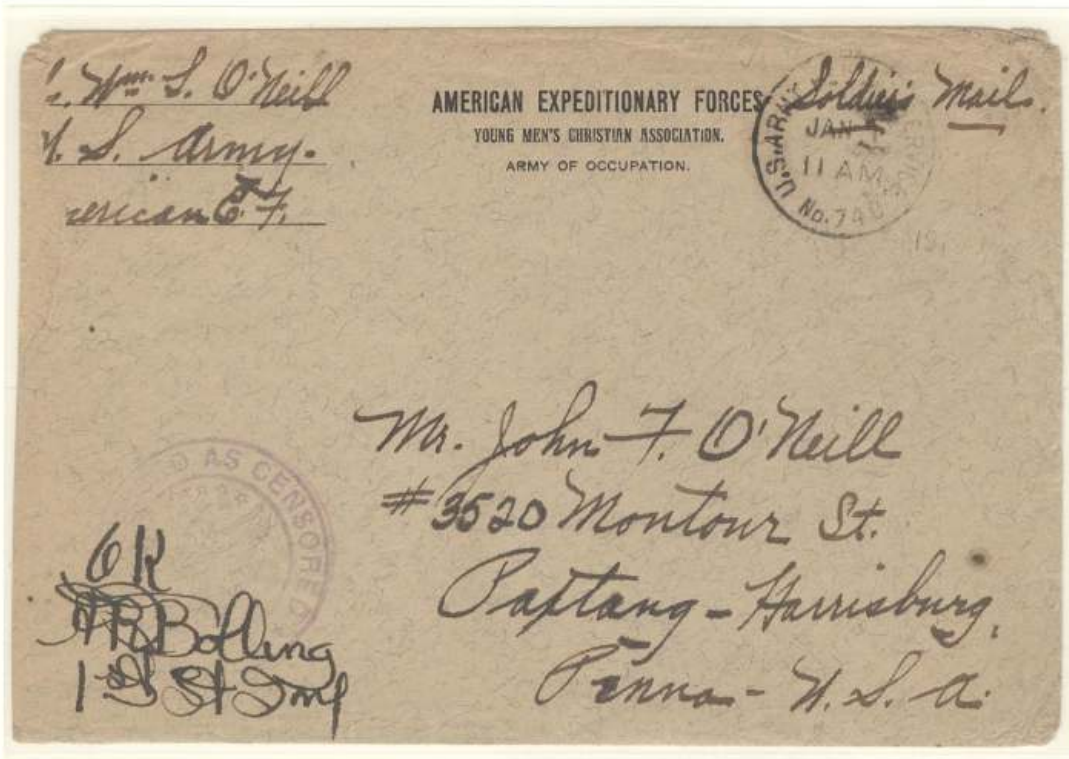 Wm. S. O'Neill
U. S. Army.
American E. F.
AMERICAN EXPEDITIONARY FORCES
YOUNG MEN'S CHRISTIAN ASSOCIATION.
ARMY OF OCCUPATION.
Soldier's Mail.
U.S. ARMY SERVICE
JAN
11 AM
No. 740
Mr. John F. O'Neill
#3520 Montour St.
Paxtang - Harrisburg,
Penna - U. S. A.
AS CENSORED
OK
Bolling
1st Lt Inf